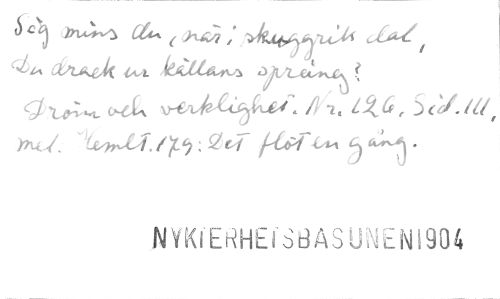 Säg mins du, när i skuggrik dal,
Du drack ur källans språng?
Dröm och verklighet. Nr. 126. Sid. 111,
mel. Hemlt. 179: Det flöt en gång.
NYKTERHETSBASUNEN1904